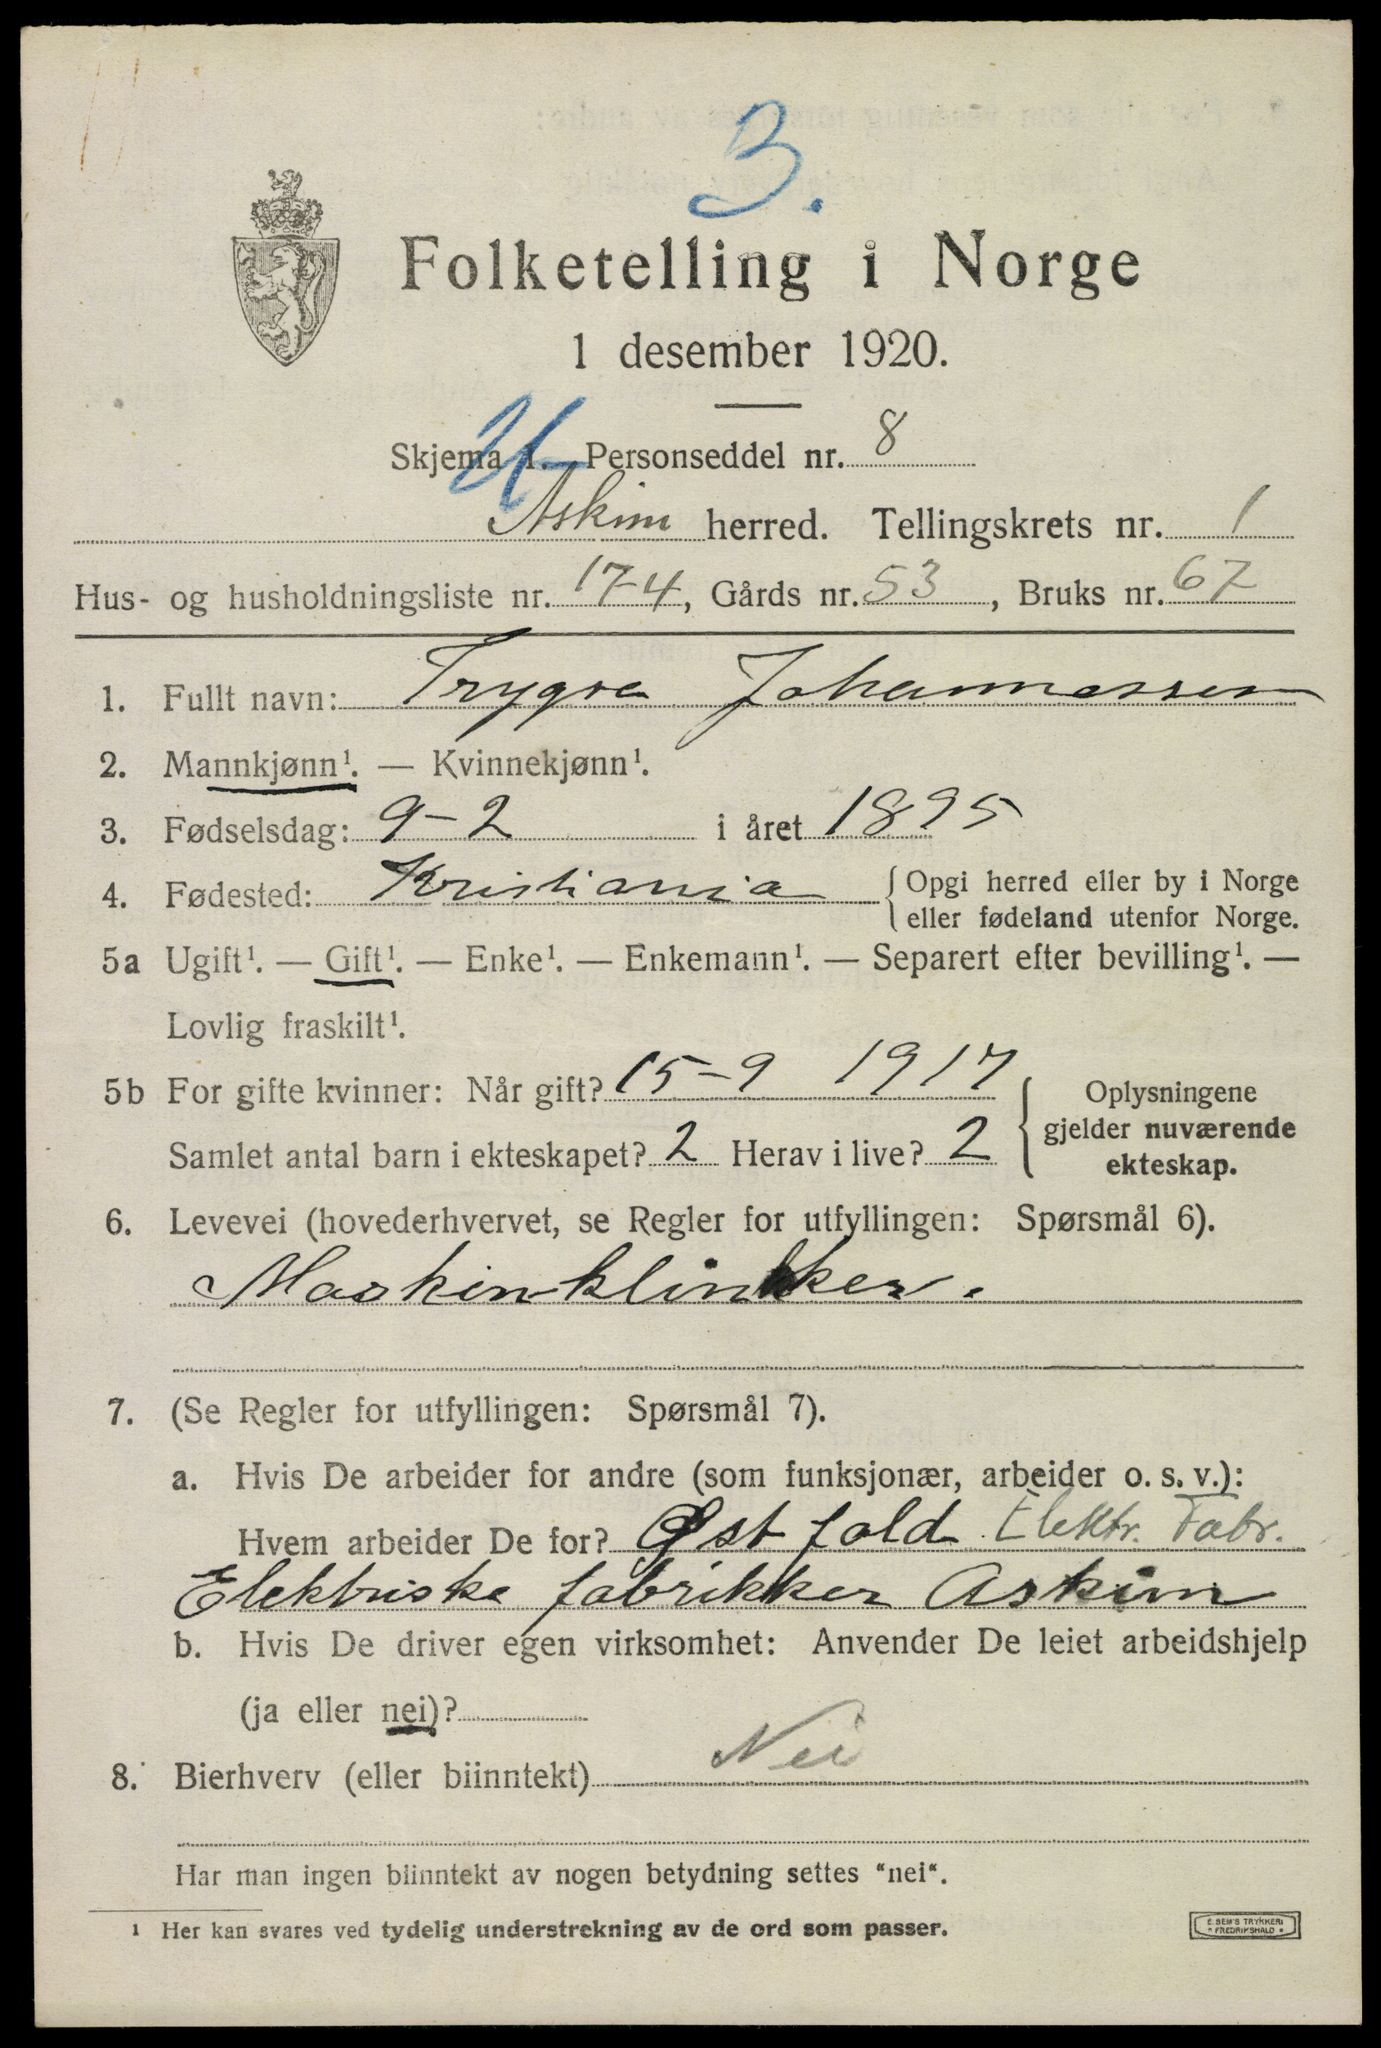 3.
Folketelling i Norge
1 desember 1920.
Skjema 1. Personseddel nr. 8
Askim herred. Tellingskrets nr. 1
Hus- og husholdningsliste nr. 174, Gårds nr. 53, Bruks nr. 67
1. Fullt navn: Trygve Johannessen
2. Mannkjønn¹. — Kvinnekjønn¹.
3. Fødselsdag: 9-2 i året 1895
4. Fødested: Kristiania {Opgi herred eller by i Norge
eller fødeland utenfor Norge.
5a Ugift¹. — Gift¹. — Enke¹. — Enkemann¹. — Separert efter bevilling¹. —
Lovlig fraskilt¹.
5b For gifte kvinner: Når gift? 15-9 1917
Samlet antal barn i ekteskapet? 2 Herav i live? 2
Oplysningene
gjelder nuværende
ekteskap.
6. Levevei (hovederhvervet, se Regler for utfyllingen: Spørsmål 6).
Maskinklinker.
7. (Se Regler for utfyllingen: Spørsmål 7).
a. Hvis De arbeider for andre (som funksjonær, arbeider o. s. v.):
Hvem arbeider De for? Østfold Elektr. Fabr.
Elektriske fabrikker Askim
b. Hvis De driver egen virksomhet: Anvender De leiet arbeidshjelp
(ja eller nei)?
8. Bierhverv (eller biinntekt) Nei
Har man ingen biinntekt av nogen betydning settes "nei".
¹ Her kan svares ved tydelig understrekning av de ord som passer.
E. SEM'S TRYKKERI
FREDRIKSHALD